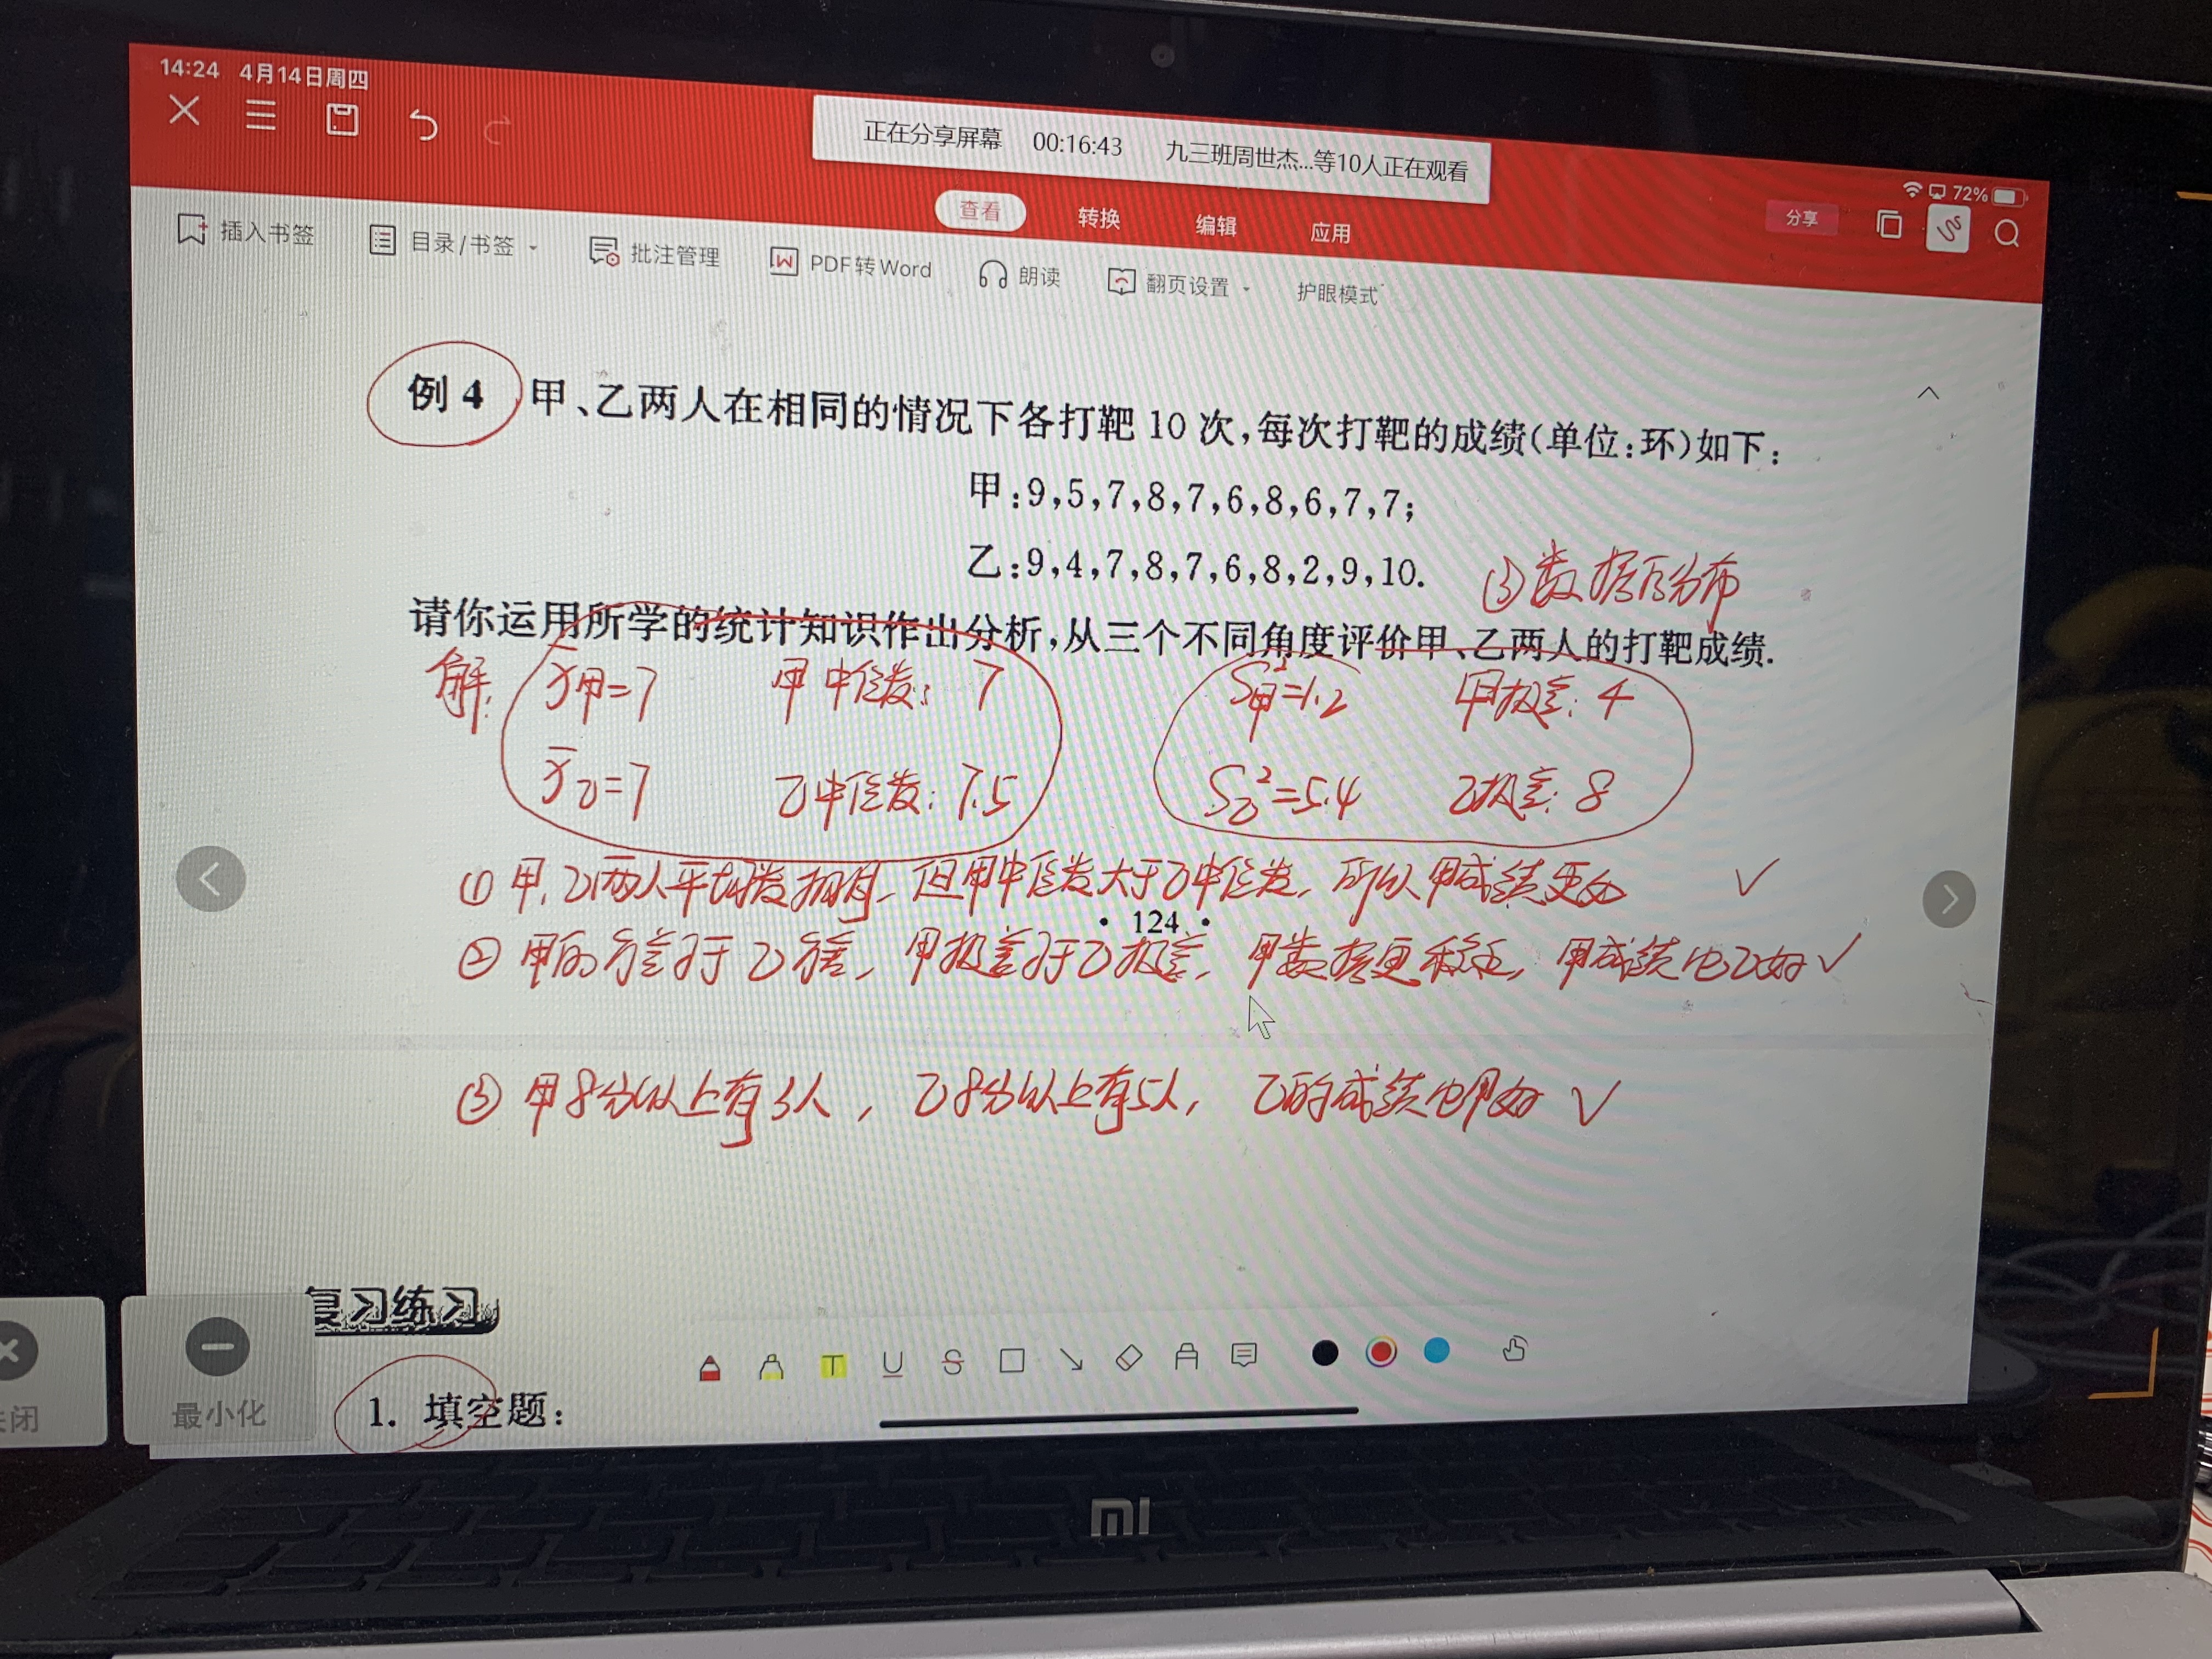 14:24 4月14日周四
正在分享屏幕 00:16:43 九三班周世杰...等10人正在观看
72%
查看 转换 编辑 应用 分享
插入书签 目录/书签 批注管理 PDF转Word 朗读 翻页设置 护眼模式
例4 甲、乙两人在相同的情况下各打靶10次,每次打靶的成绩(单位:环)如下:
甲:9,5,7,8,7,6,8,6,7,7;
乙:9,4,7,8,7,6,8,2,9,10.
③数据的分布
请你运用所学的统计知识作出分析,从三个不同角度评价甲、乙两人的打靶成绩.
解: x̄甲=7 甲中位数: 7 S²甲=1.2 甲极差: 4
x̄乙=7 乙中位数: 7.5 S²乙=5.4 乙极差: 8
① 甲、乙两人平均数相同, 但甲中位数大于乙中位数, 所以甲成绩更好 ✓
• 124 •
② 甲的方差小于乙方差, 甲极差小于乙极差, 甲数据更稳定, 甲成绩比乙好 ✓
③ 甲8分以上有3人, 乙8分以上有5人, 乙的成绩比甲好 ✓
复习练习
1. 填空题:
关闭
最小化
mi